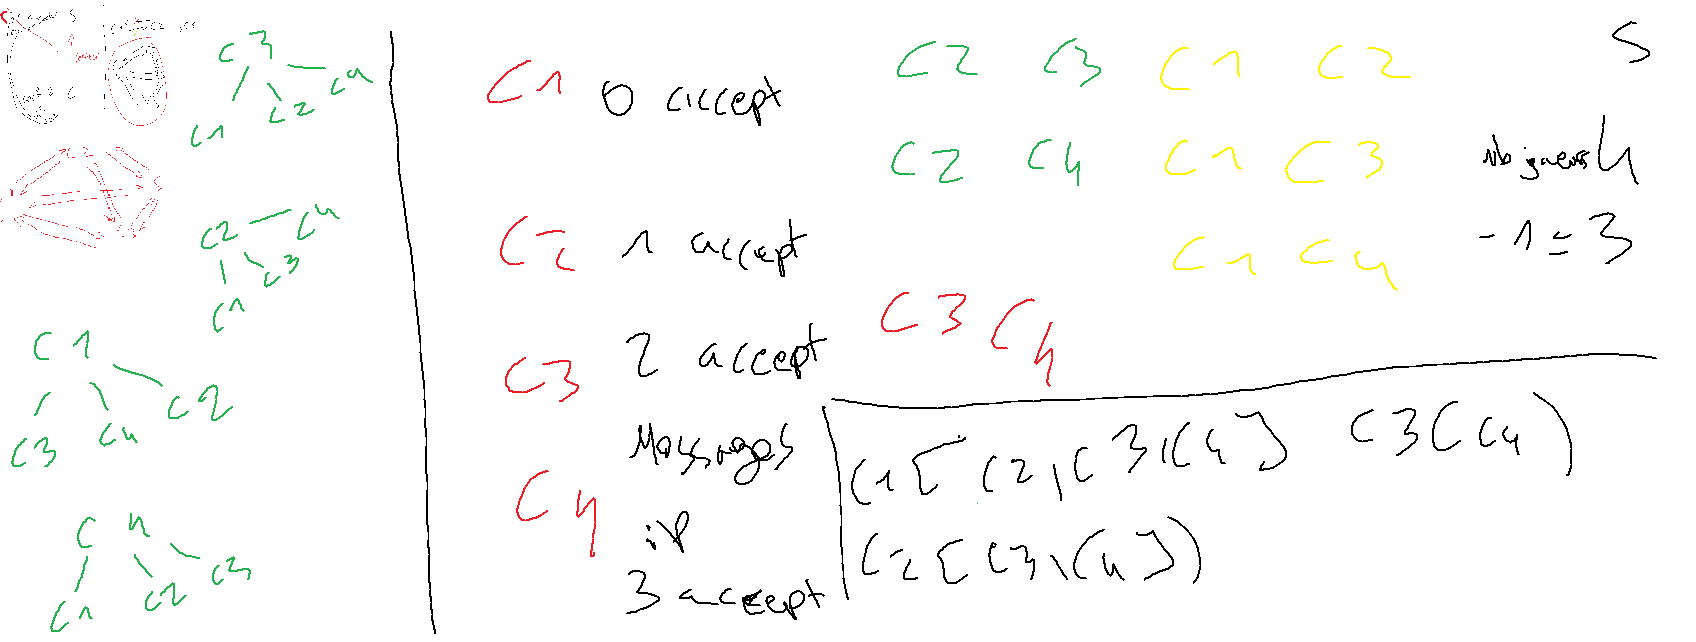 C3
C1 C2 C4
C2 C4
C1 C3
C1
C3 C4 C2
C4
C1 C2 C3
C1 0 accept
C2 1 accept
C3 2 accept
Messages
C4 iP
3 accept
C2 C3 C1 C2
C2 C4 C1 C3
C1 C4
C3 C4
S
Nb joueurs 4
-1 = 3
C1[C2,C3,C4] C3(C4)
C2[C3,C4])